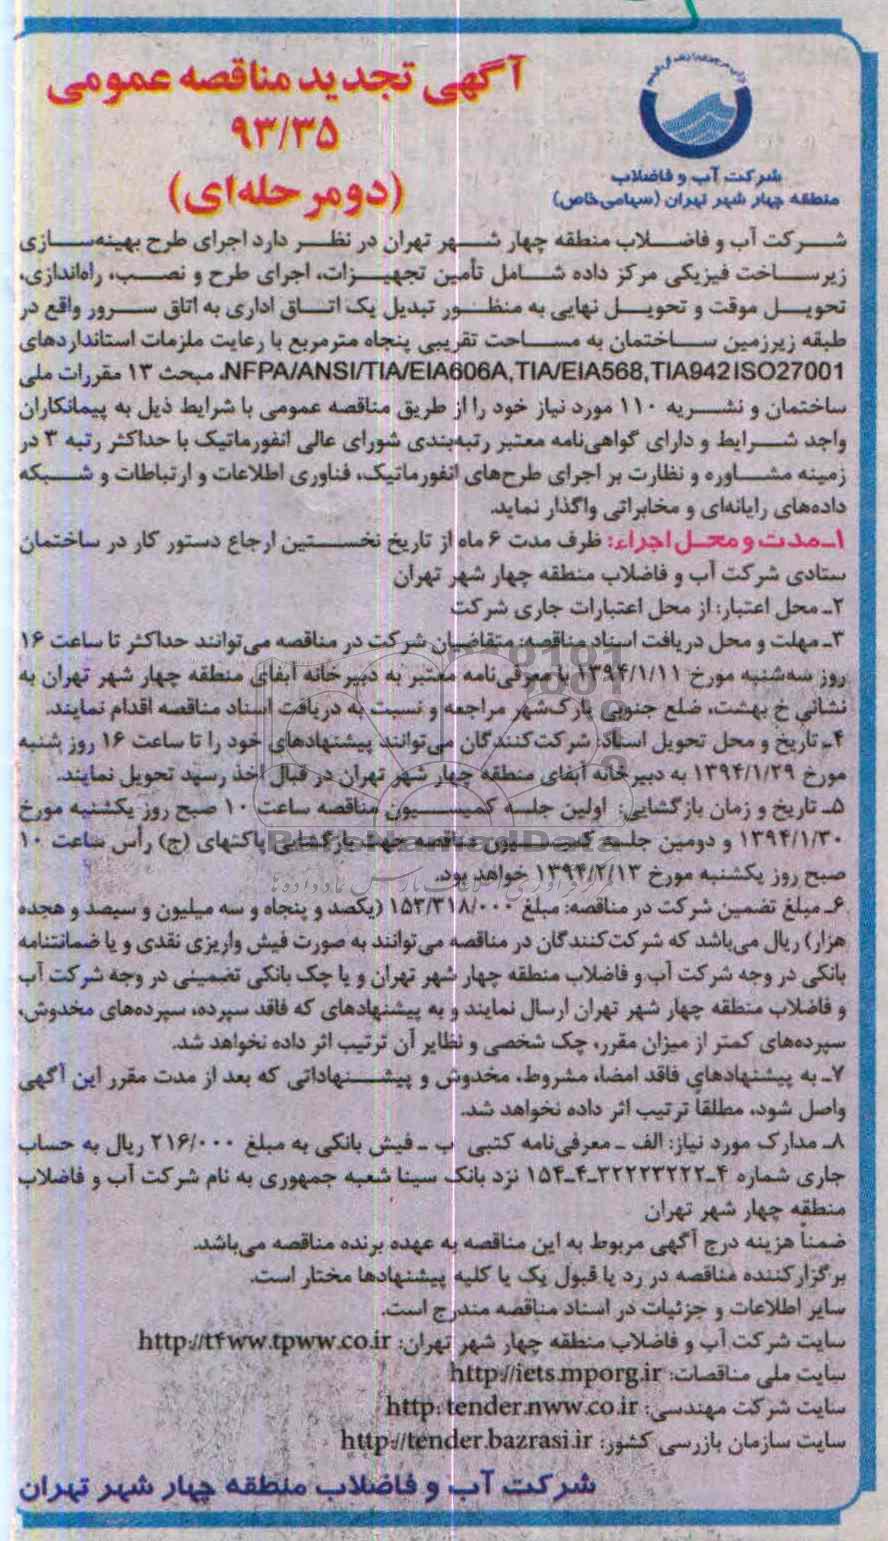 آگهی تجدید مناقصه عمومی
۹۳/۳۵
(دومرحله‌ای)
شرکت آب و فاضلاب
منطقه چهار شهر تهران (سهامی‌خاص)
شرکت آب و فاضلاب منطقه چهار شهر تهران در نظر دارد اجرای طرح بهینه‌سازی
زیرساخت فیزیکی مرکز داده شامل تأمین تجهیزات، اجرای طرح و نصب، راه‌اندازی،
تحویل موقت و تحویل نهایی به منظور تبدیل یک اتاق اداری به اتاق سرور واقع در
طبقه زیرزمین ساختمان به مساحت تقریبی پنجاه مترمربع با رعایت ملزمات استانداردهای
NFPA/ANSI/TIA/EIA606A,TIA/EIA568,TIA942 ISO27001، مبحث ۱۳ مقررات ملی
ساختمان و نشریه ۱۱۰ مورد نیاز خود را از طریق مناقصه عمومی با شرایط ذیل به پیمانکاران
واجد شرایط و دارای گواهی‌نامه معتبر رتبه‌بندی شورای عالی انفورماتیک با حداکثر رتبه ۳ در
زمینه مشاوره و نظارت بر اجرای طرح‌های انفورماتیک، فناوری اطلاعات و ارتباطات و شبکه
داده‌های رایانه‌ای و مخابراتی واگذار نماید.
۱ـ مدت و محل اجراء: ظرف مدت ۶ ماه از تاریخ نخستین ارجاع دستور کار در ساختمان
ستادی شرکت آب و فاضلاب منطقه چهار شهر تهران
۲ـ محل اعتبار: از محل اعتبارات جاری شرکت
۳ـ مهلت و محل دریافت اسناد مناقصه: متقاضیان شرکت در مناقصه می‌توانند حداکثر تا ساعت ۱۶
روز سه‌شنبه مورخ ۱۳۹۴/۱/۱۱ با معرفی‌نامه معتبر به دبیرخانه آبفای منطقه چهار شهر تهران به
نشانی خ بهشت، ضلع جنوبی پارک‌شهر مراجعه و نسبت به دریافت اسناد مناقصه اقدام نمایند.
۴ـ تاریخ و محل تحویل اسناد: شرکت‌کنندگان می‌توانند پیشنهادهای خود را تا ساعت ۱۶ روز شنبه
مورخ ۱۳۹۴/۱/۲۹ به دبیرخانه آبفای منطقه چهار شهر تهران در قبال اخذ رسید تحویل نمایند.
۵ـ تاریخ و زمان بازگشایی: اولین جلسه کمیسیون مناقصه ساعت ۱۰ صبح روز یکشنبه مورخ
۱۳۹۴/۱/۳۰ و دومین جلسه کمیسیون مناقصه جهت بازگشایی پاکتهای (ج) رأس ساعت ۱۰
صبح روز یکشنبه مورخ ۱۳۹۴/۲/۱۳ خواهد بود.
۶ـ مبلغ تضمین شرکت در مناقصه: مبلغ ۱۵۳/۳۱۸/۰۰۰ (یکصد و پنجاه و سه میلیون و سیصد و هجده
هزار) ریال می‌باشد که شرکت‌کنندگان در مناقصه می‌توانند به صورت فیش واریزی نقدی و یا ضمانتنامه
بانکی در وجه شرکت آب و فاضلاب منطقه چهار شهر تهران و یا چک بانکی تضمینی در وجه شرکت آب
و فاضلاب منطقه چهار شهر تهران ارسال نمایند و به پیشنهادهای که فاقد سپرده، سپرده‌های مخدوش،
سپرده‌های کمتر از میزان مقرر، چک شخصی و نظایر آن ترتیب اثر داده نخواهد شد.
۷ـ به پیشنهادهای فاقد امضا، مشروط، مخدوش و پیشنهاداتی که بعد از مدت مقرر این آگهی
واصل شود، مطلقاً ترتیب اثر داده نخواهد شد.
۸ـ مدارک مورد نیاز: الف ـ معرفی‌نامه کتبی ب ـ فیش بانکی به مبلغ ۲۱۶/۰۰۰ ریال به حساب
جاری شماره ۴ـ۳۲۲۲۳۲۲۲ـ۴ـ۱۵۴ نزد بانک سینا شعبه جمهوری به نام شرکت آب و فاضلاب
منطقه چهار شهر تهران
ضمناً هزینه درج آگهی مربوط به این مناقصه به عهده برنده مناقصه می‌باشد.
برگزارکننده مناقصه در رد یا قبول یک یا کلیه پیشنهادها مختار است.
سایر اطلاعات و جزئیات در اسناد مناقصه مندرج است.
سایت شرکت آب و فاضلاب منطقه چهار شهر تهران: http://t۴ww.tpww.co.ir
سایت ملی مناقصات: http://iets.mporg.ir
سایت شرکت مهندسی: http: tender.nww.co.ir
سایت سازمان بازرسی کشور: http://tender.bazrasi.ir
شرکت آب و فاضلاب منطقه چهار شهر تهران